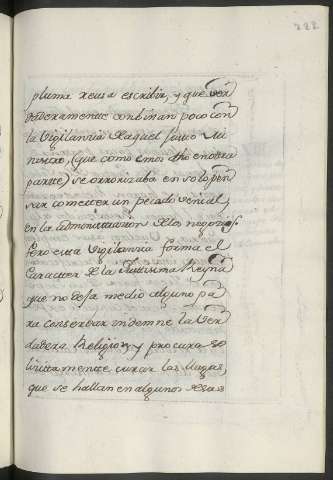 222
pluma reusa escribir, y que ver
daderamente conbinan poco con
la vigilancia de aquel savio Mi
nistro, (que como emos dho en otra
parte) se orrorizaba en solo pen
sar cometter un pecado venial,
en la administracion de los negocios.
Pero esta vigilancia forma el
Caracter de la Justisima Reyna
que no deja medio alguno pa
ra conserbar indemne la Ver
dadera Religion, y procura so
licitamente curar las llagas,
que se hallan en algunos de sus